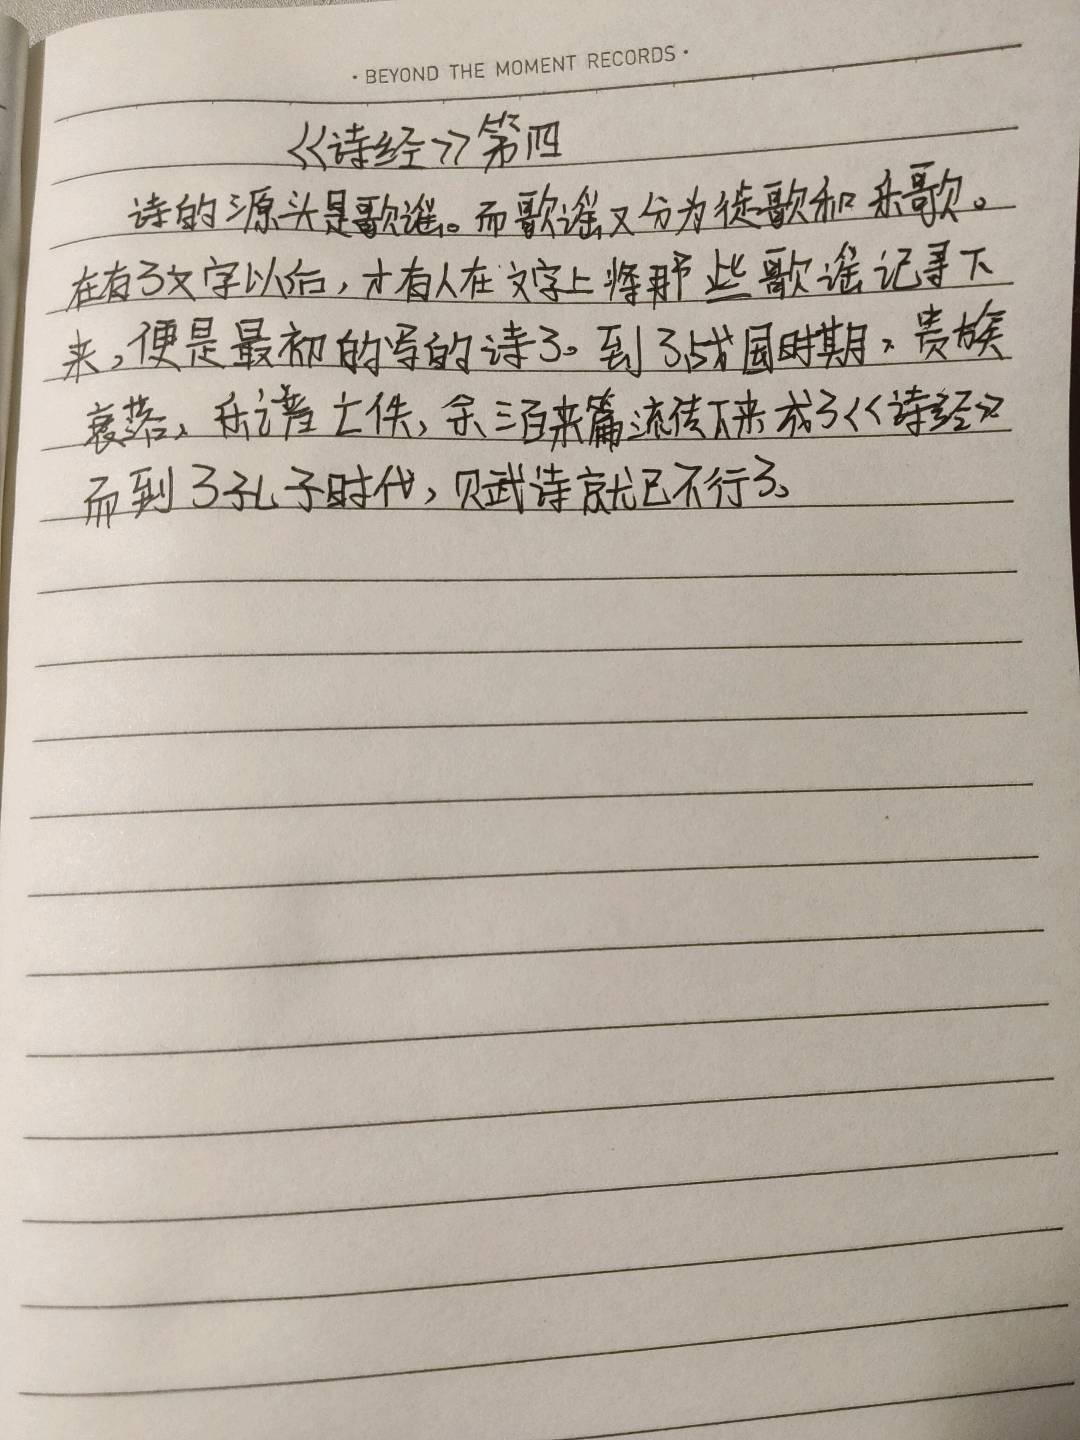 · BEYOND THE MOMENT RECORDS ·
《诗经》第四
诗的源头是歌谣。而歌谣又分为徒歌和乐歌。
在有了文字以后，才有人在文字上将那些歌谣记录下
来，便是最初的写的诗了。到了战国时期，贵族
衰落，乐谱亡佚，余三百来篇流传下来成了《诗经》
而到了孔子时代，赋诗就已不行了。